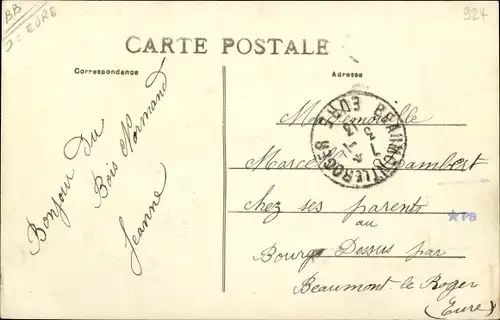 BB
D = EURE
924
CARTE POSTALE
Correspondance
Adresse
Bonjour Du
Bois Normand
Jeanne
Mademoiselle
Marcelle Lambert
chez ses parents
au
Bourg Dessus par
Beaumont le Roger
(Eure)
BEAUMONT-LE-ROGER
EURE
★PB